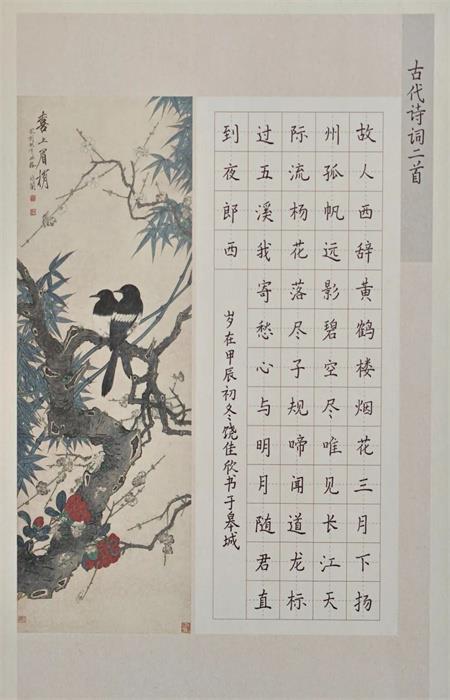 古代诗词二首
故人西辞黄鹤楼烟花三月下扬
州孤帆远影碧空尽唯见长江天
际流杨花落尽子规啼闻道龙标
过五溪我寄愁心与明月随君直
到夜郎西
岁在甲辰初冬饶佳欣书于皋城
喜上眉梢